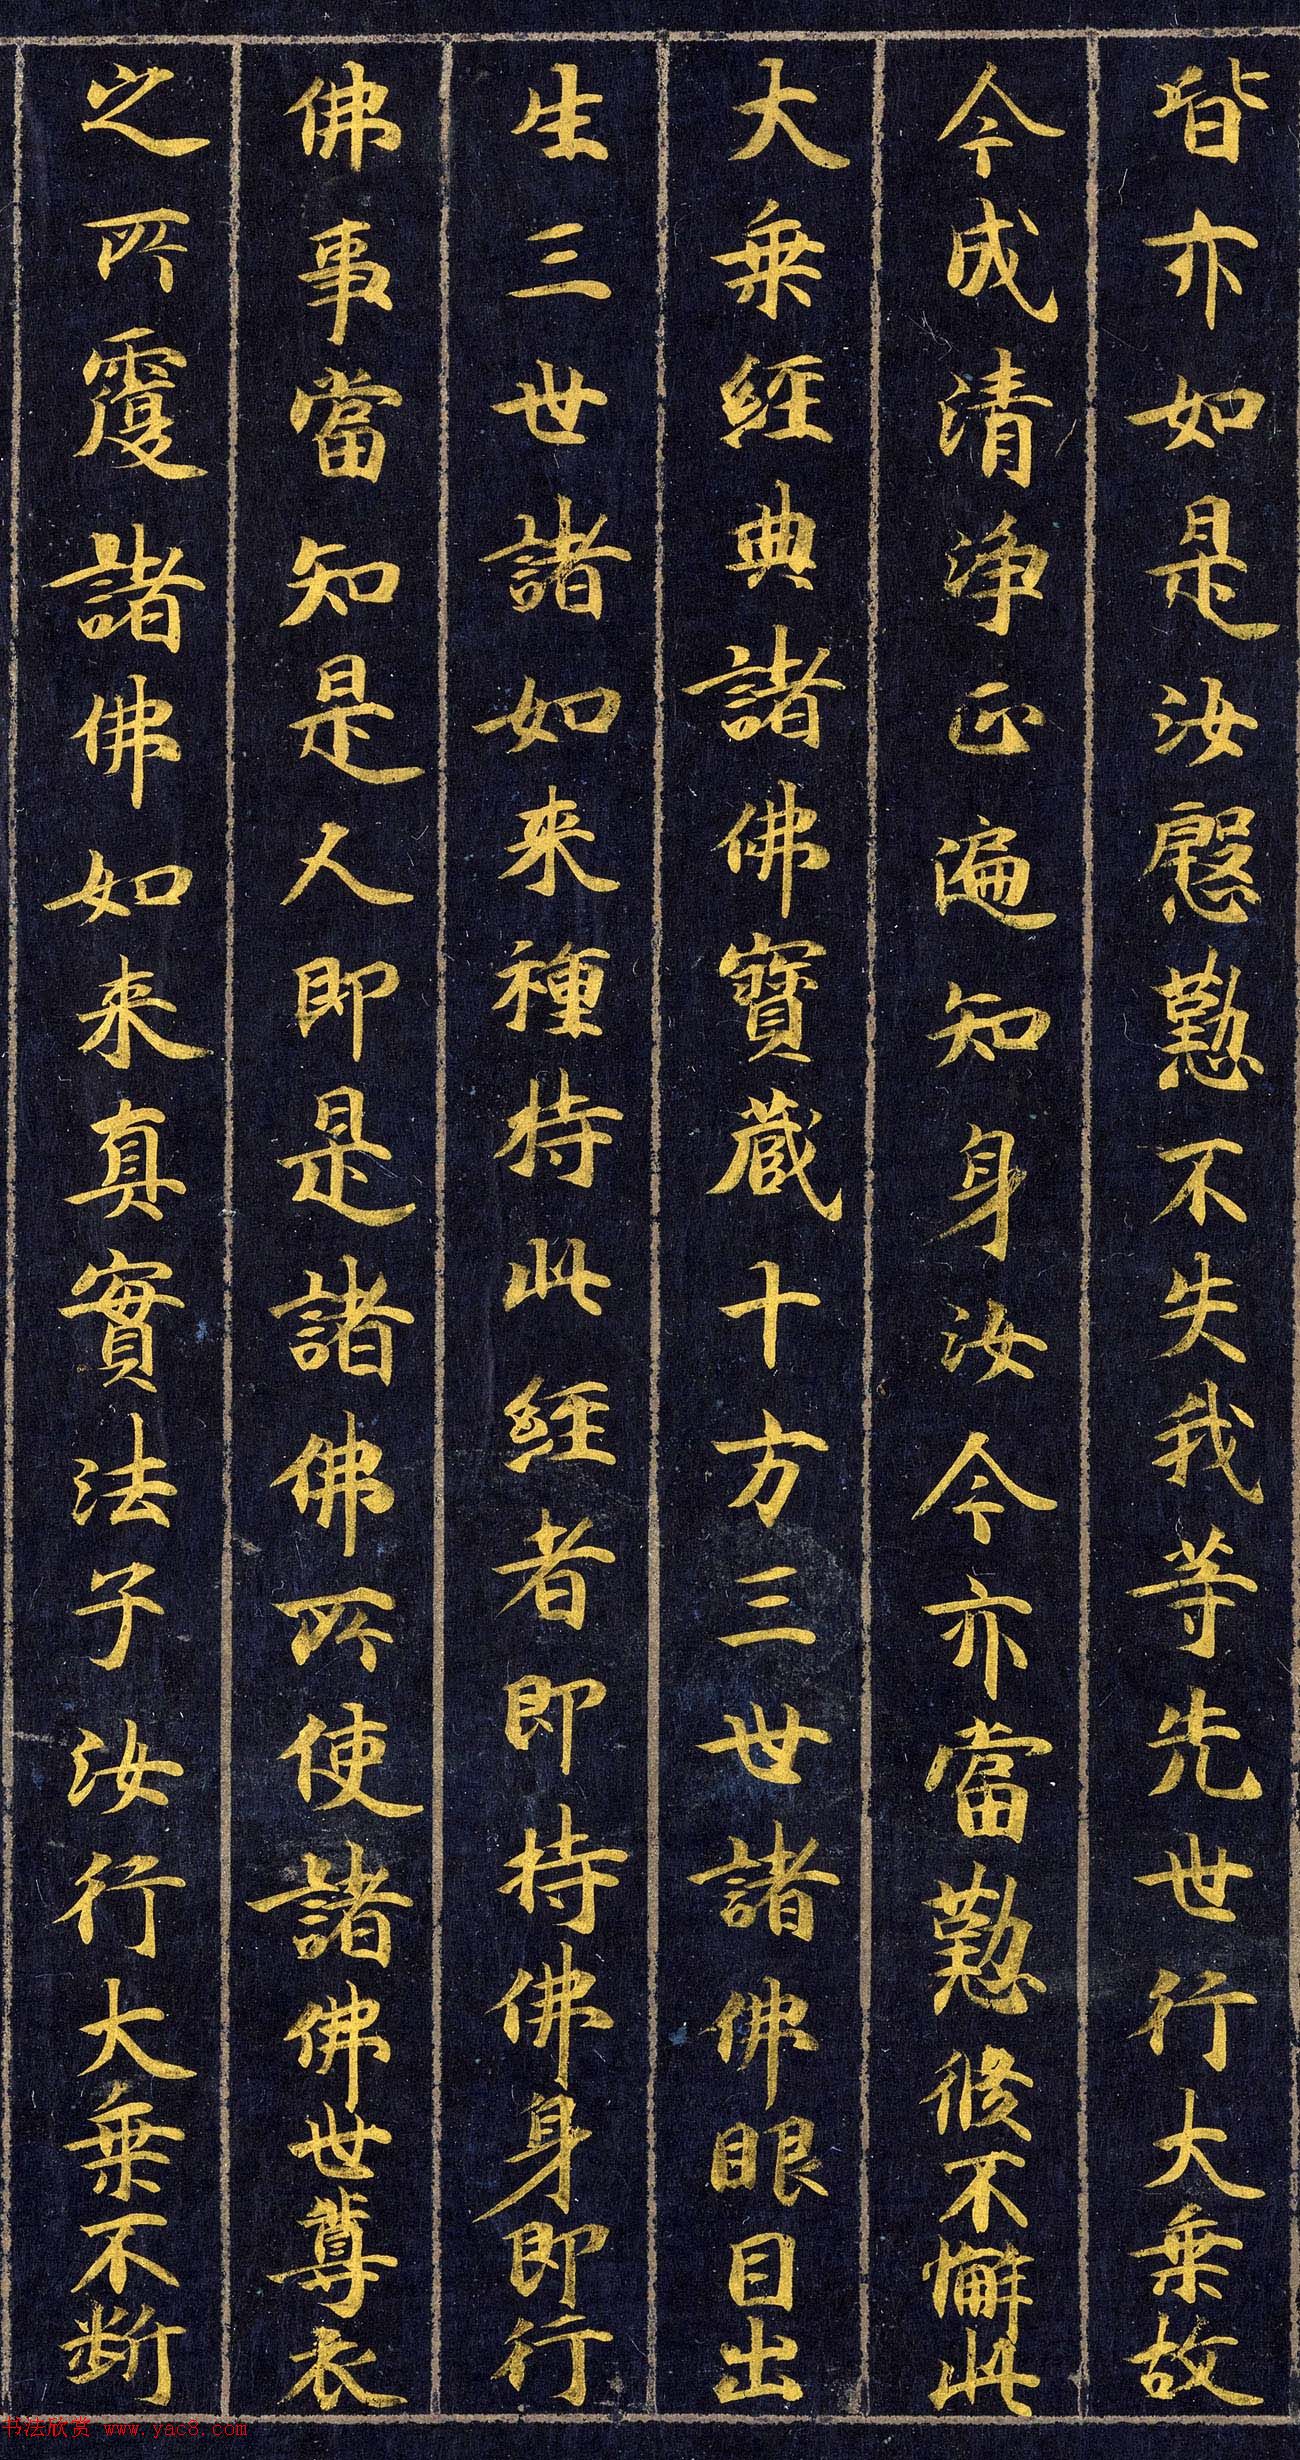 皆亦如是汝慇懃不失我等先世行大乗故
今成清淨正遍知身汝今亦當懃修不懈此
大乗經典諸佛寶藏十方三世諸佛眼目出
生三世諸如来種持此經者即持佛身即行
佛事當知是人即是諸佛所使諸佛世尊衣
之所覆諸佛如来真實法子汝行大乗不斷
书法欣赏 www.yac8.com